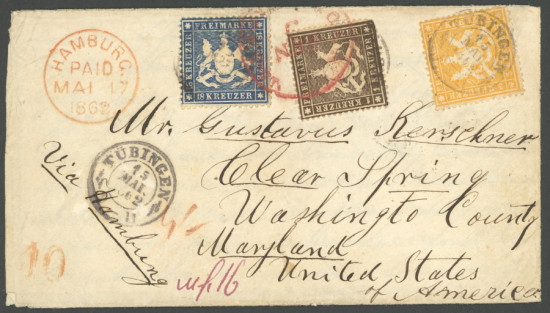 HAMBURG
PAID
MAI 17
1862
FREIMARKE
KREUZER
18 KREUZER
FREIMARKE
1 KREUZER 1
TÜBINGEN
Mr. Gustavus Kerschner
Clear Spring
Washington County
Maryland
United States
of America
Via Hamburg
TÜBINGEN
15
MAI
62
10